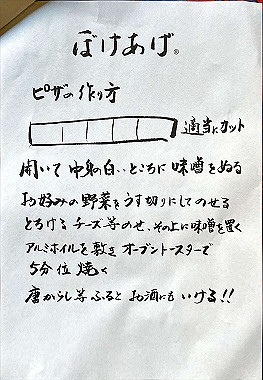 ぼけあげ®
ピザの作り方
適当にカット
開いて中身の白いところに味噌をぬる
お好みの野菜をうす切りにしてのせる
とろけるチーズ等のせ、その上に味噌を置く
アルミホイルを敷きオーブントースターで
5分位焼く
唐がらし等ふるとお酒にもいける!!